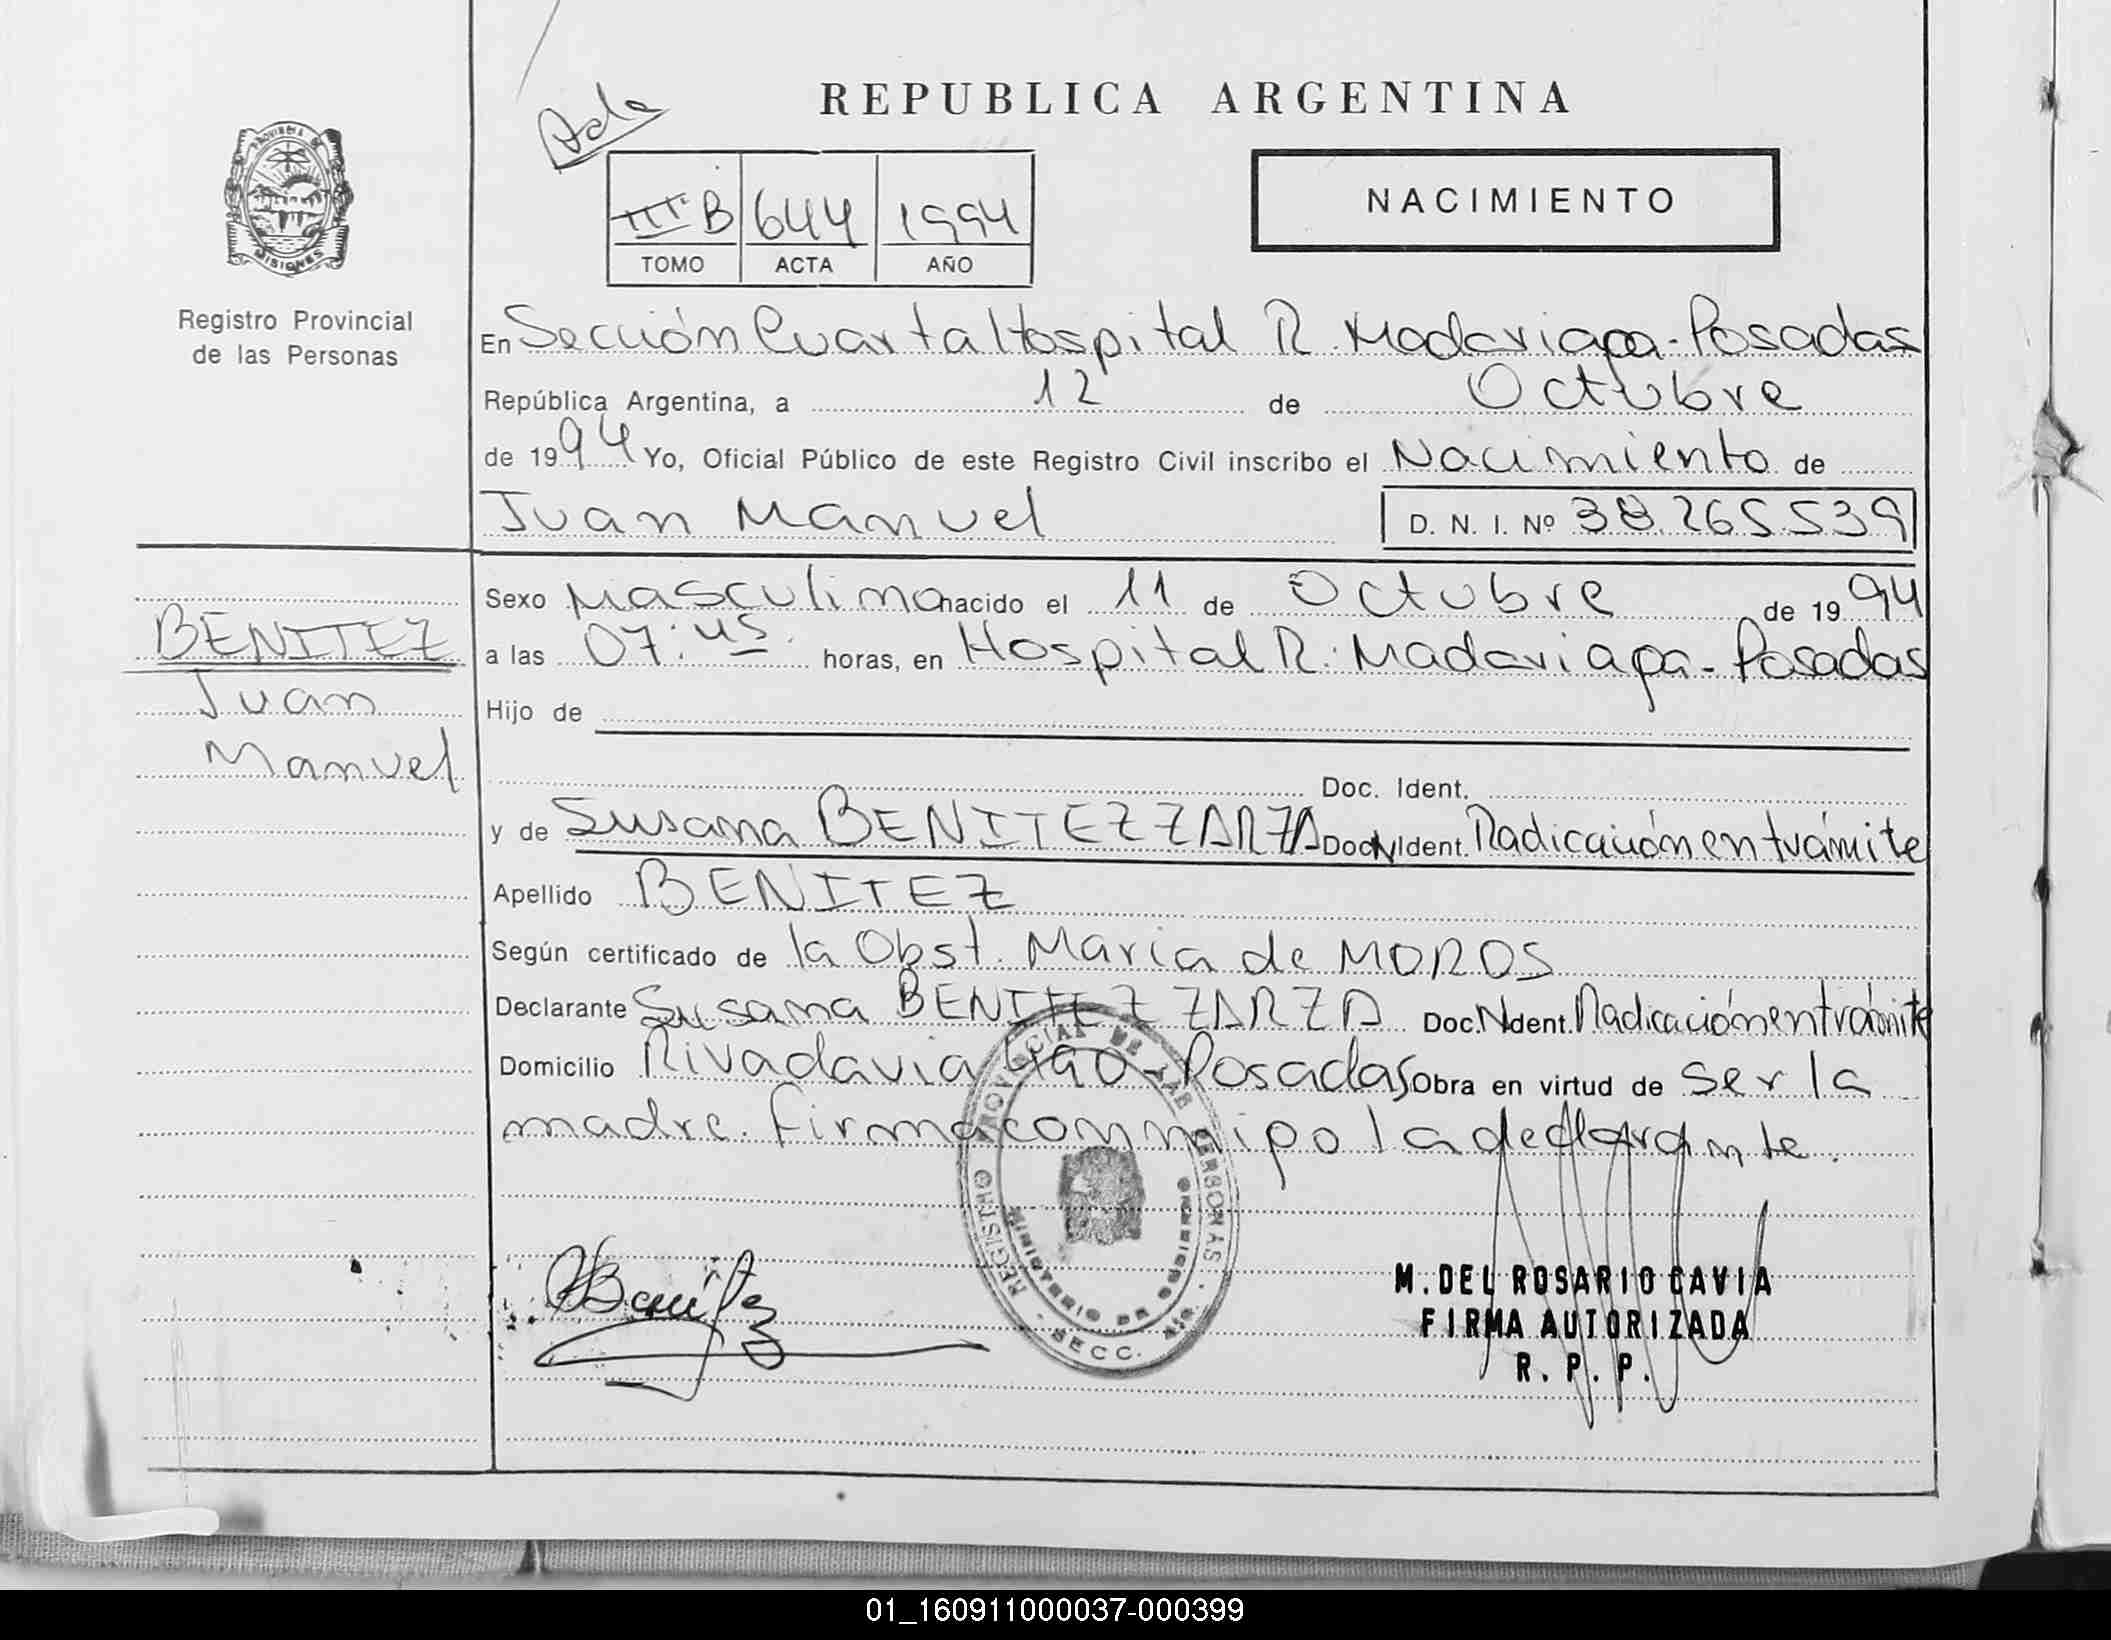 REPUBLICA ARGENTINA
Ada
IIIº B 644 1994
TOMO ACTA AÑO
NACIMIENTO
PROVINCIA DE
MISIONES
Registro Provincial
de las Personas
En Sección Cuarta Hospital R. Madariaga - Posadas
República Argentina, a 12 de Octubre
de 1994 Yo, Oficial Público de este Registro Civil inscribo el Nacimiento de
Juan Manuel D. N. I. Nº 38.265.539
Sexo Masculino nacido el 11 de Octubre de 1994
a las 07:45 horas, en Hospital R. Madariaga - Posadas
Hijo de
Doc. Ident.
y de Susana BENITEZ ZARZA Doc. Ident. Radicación en trámite
Apellido BENITEZ
Según certificado de la Obst. Maria de MOROS
Declarante Susana BENITEZ ZARZA Doc. Ident. Radicación en trámite
Domicilio Rivadavia 490 - Posadas Obra en virtud de ser la
madre. firma conmigo la declarante.
BENITEZ
Juan
Manuel
REGISTRO PROVINCIAL DE LAS PERSONAS
MINISTERIO DE GOBIERNO
SECC.
SBenítez
M. DEL ROSARIO CAVIA
FIRMA AUTORIZADA
R. P. P.
01_160911000037-000399